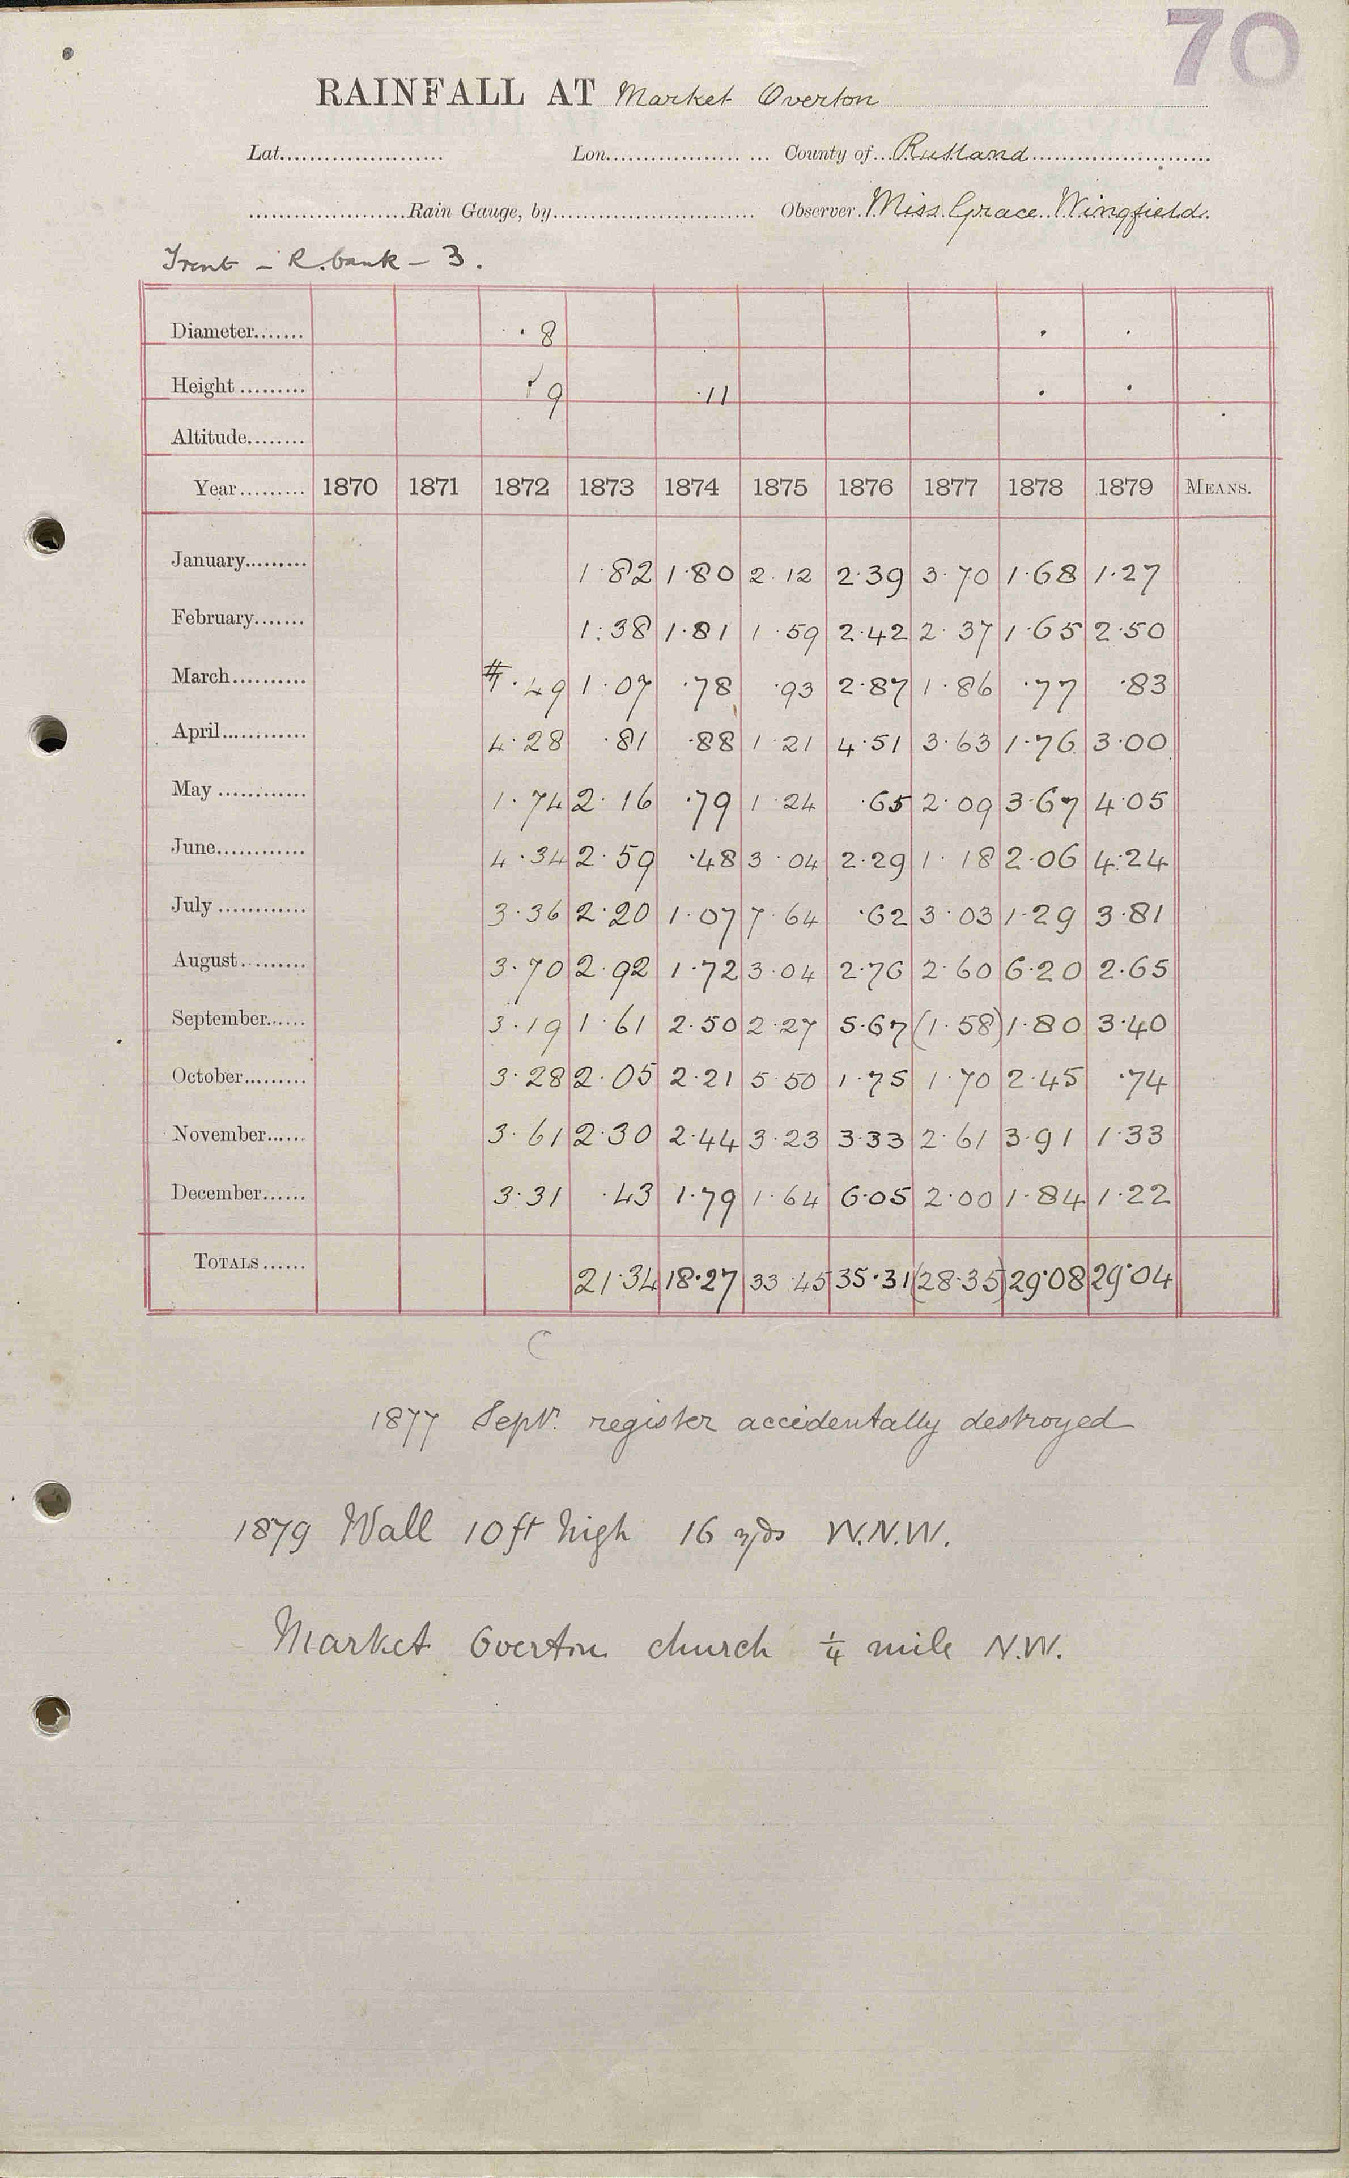 70
RAINFALL AT Market Overton
Lat. Lon. County of Rutland
Rain Gauge, by Observer Miss Grace Wingfield.
Trent - R. bank - 3.
Diameter 8
Height 9 11
Altitude
Year 1870 1871 1872 1873 1874 1875 1876 1877 1878 1879 MEANS.
January 1.82 1.80 2.12 2.39 3.70 1.68 1.27
February 1.38 1.81 1.59 2.42 2.37 1.65 2.50
March .49 1.07 .78 .93 2.87 1.86 .77 .83
April 4.28 .81 .88 1.21 4.51 3.63 1.76 3.00
May 1.74 2.16 .79 1.24 .65 2.09 3.67 4.05
June 4.34 2.59 .48 3.04 2.29 1.18 2.06 4.24
July 3.36 2.20 1.07 7.64 .62 3.03 1.29 3.81
August 3.70 2.92 1.72 3.04 2.76 2.60 6.20 2.65
September 3.19 1.61 2.50 2.27 5.67 (1.58) 1.80 3.40
October 3.28 2.05 2.21 5.50 1.75 1.70 2.45 .74
November 3.61 2.30 2.44 3.23 3.33 2.61 3.91 1.33
December 3.31 .43 1.79 1.64 6.05 2.00 1.84 1.22
TOTALS 21.34 18.27 33.45 35.31 (28.35) 29.08 29.04
1877 Septr. register accidentally destroyed
1879 Wall 10 ft high 16 yds W.N.W.
Market Overton church ¼ mile N.W.